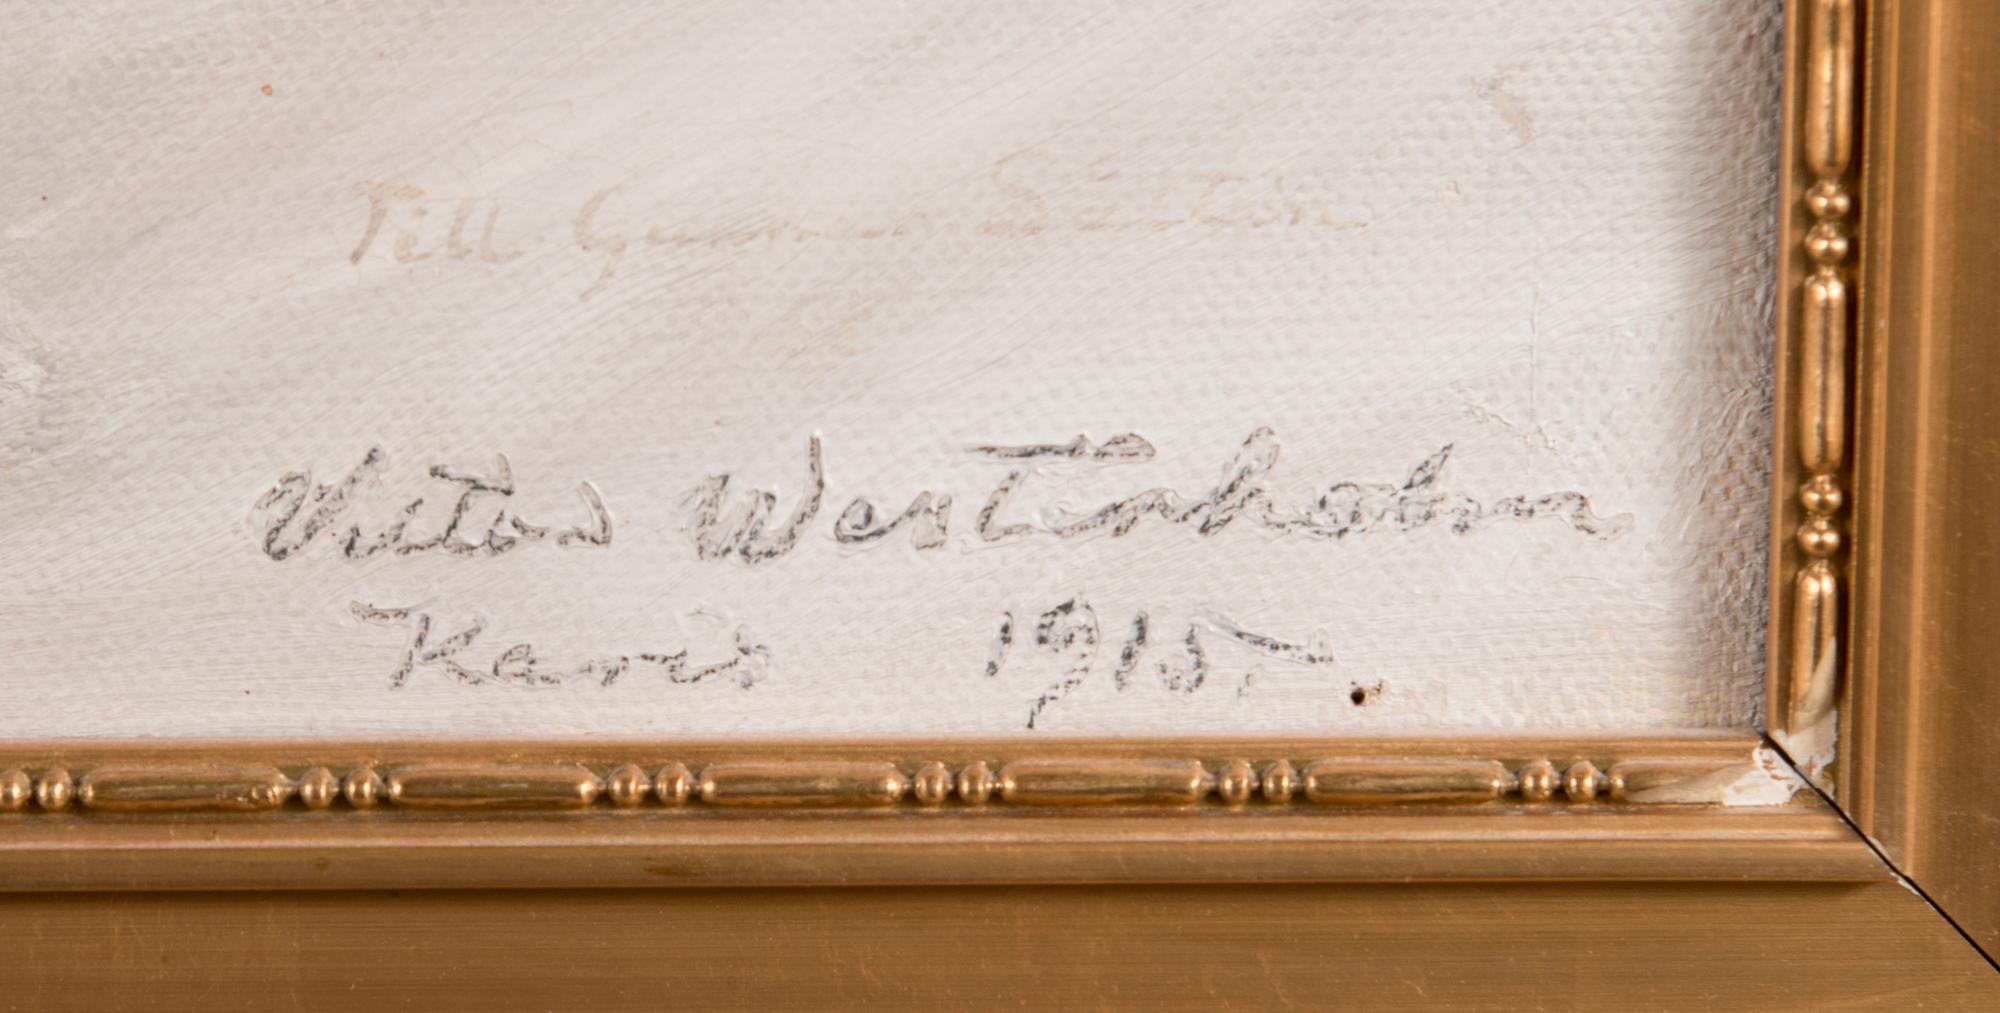 Till Gunnar
Victor Westerholm
Karis 1915.